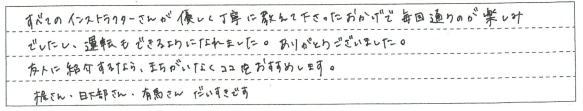 すべてのインストラクターさんが優しく丁寧に教えて下さったおかげで毎回通うのが楽しみ
でしたし、運転もできるようになれました。ありがとうございました。
友人に紹介するなら、まちがいなくココをおすすめします。
梶さん・日下部さん・有馬さん だいすきです